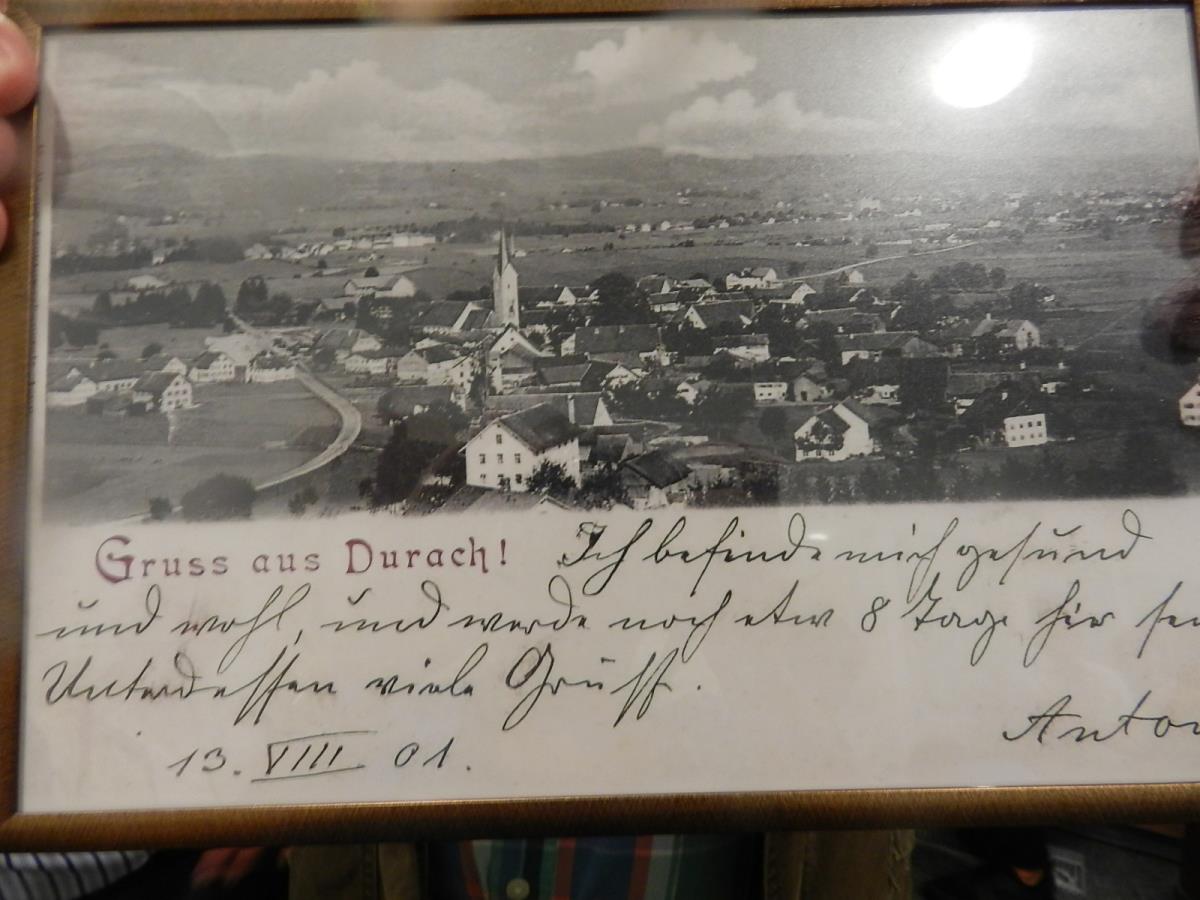 Gruss aus Durach! Ich befinde mich gesund
und wohl, und werde noch etw 8 Tage hir
Unterdessen viele Grüß.
13. VIII 01. Anton